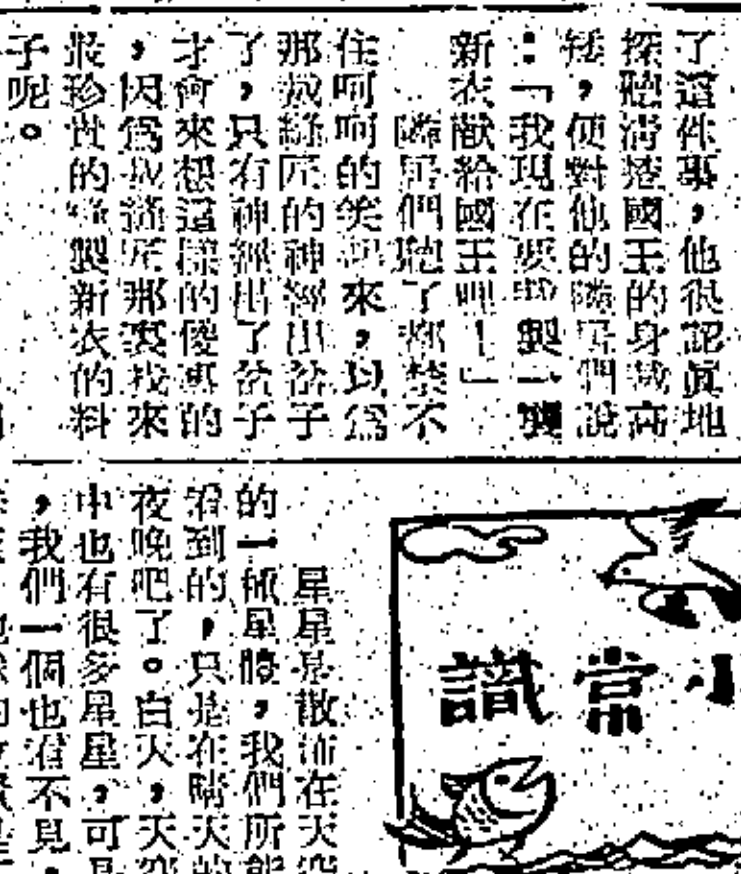 了這件事，他很認眞地
探聽清楚國王的身裁高
矮，便對他的隣居們說
：「我現在要縫製一襲
新衣獻給國王哩！」
隣居們聽了都禁不
住呵呵的笑起來，以爲
那裁縫匠的神經出岔子
了，只有神經出了岔子
才會來想這樣的傻事的
，因爲裁縫匠那裏找來
最珍貴的縫製新衣的料
子呢。
小常識
星星是散佈在天空
的一種星體，我們所能
看到的，只是在晴天的
夜晚吧了。白天，天空
中也有很多星星，可是
，我們一個也看不見，